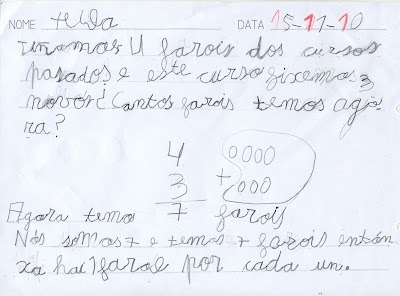 NOME tegra DATA 15-11-10
Tiñamos 4 farois dos cursos
pasados e este curso fixemos 3
novos ¿Cantos farois temos ago
ra?
4 0000
3 + 000
Agora temo 7 farois
Nós somos 7 e temos 7 farois entón
xa hai 1 farol por cada un.